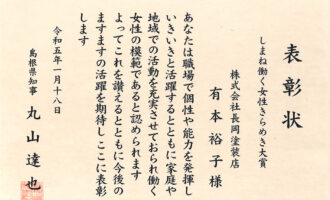 表彰状
しまね働く女性きらめき大賞
株式会社長岡塗装店
有本裕子様
あなたは職場で個性や能力を発揮し
いきいきと活躍するとともに家庭や
地域での活動を充実させておられ働く
女性の模範であると認められます
よってこれを讃えるとともに今後の
ますますの活躍を期待しここに表彰
します
令和五年一月十八日
島根県知事 丸山達也